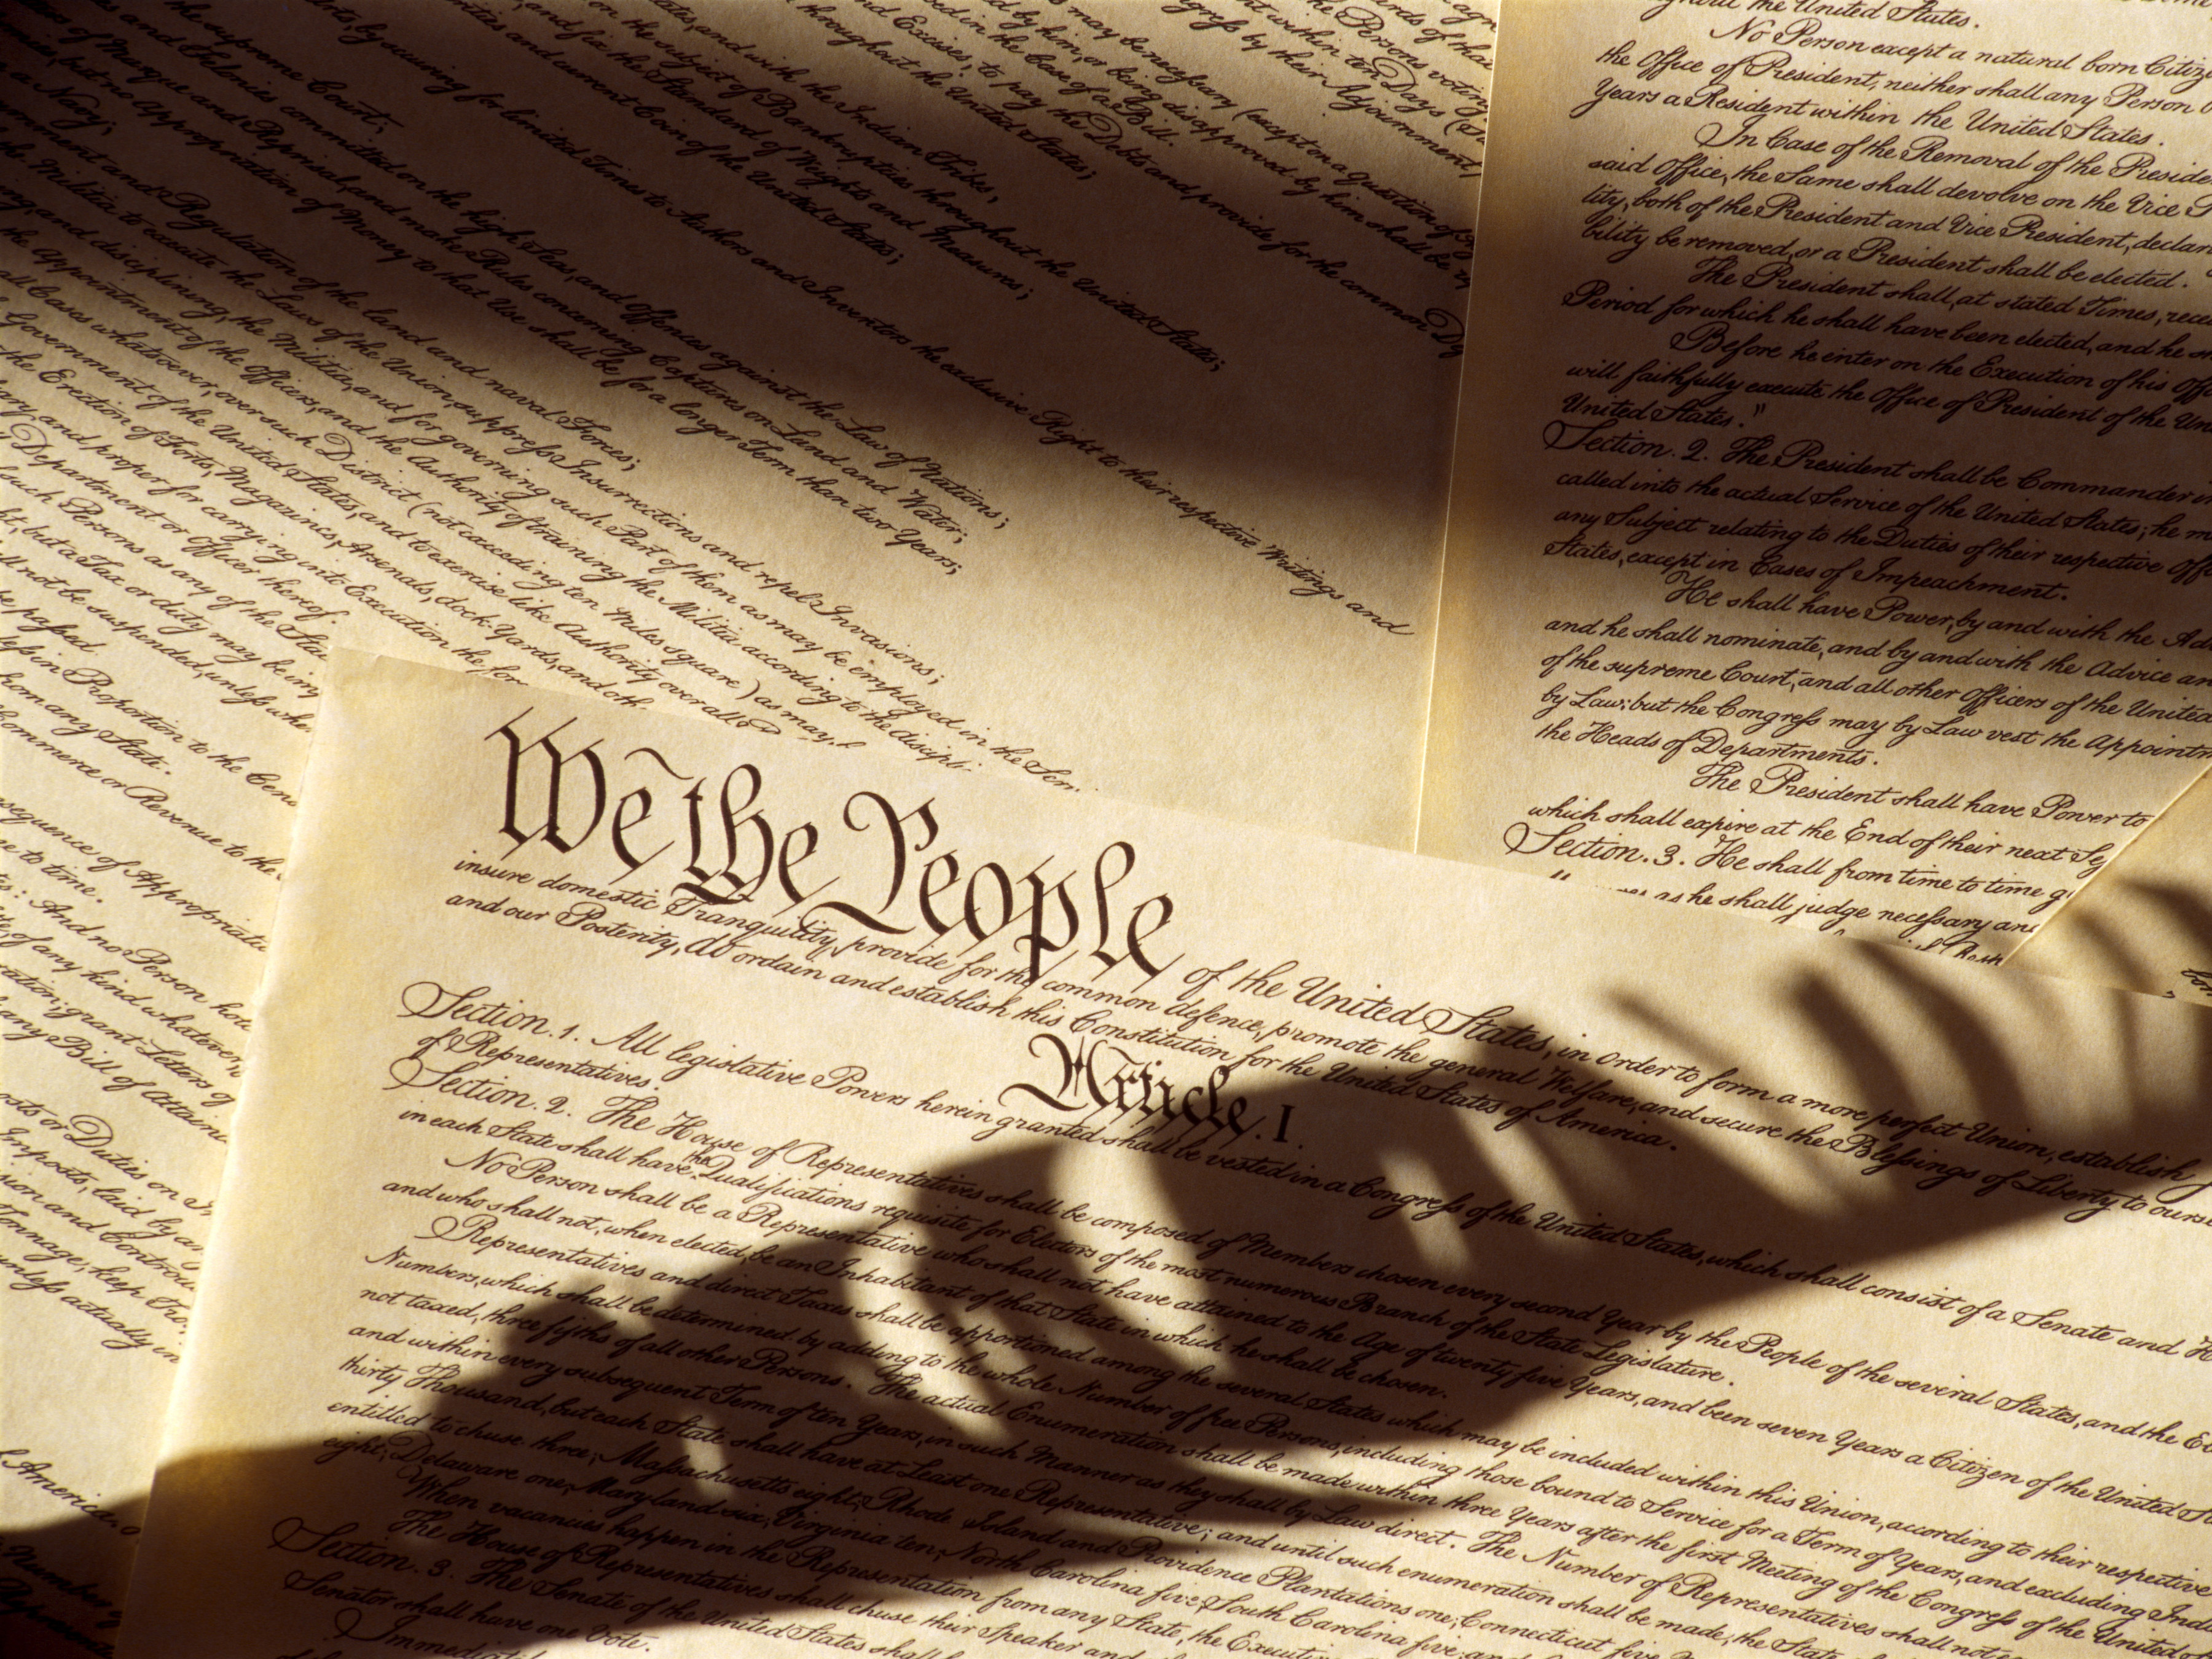 We the People of the United States, in Order to form a more perfect Union, establish
insure domestic Tranquility, provide for the common defence, promote the general Welfare, and secure the Blessings of Liberty to
and our Posterity, do ordain and establish this Constitution for the United States of America.
Article. I.
Section. 1. All legislative Powers herein granted shall be vested in a Congress of the United States, which shall consist of a Senate and
of Representatives.
Section. 2. The House of Representatives shall be composed of Members chosen every second Year by the People of the several States, and the
in each State shall have the Qualifications requisite for Electors of the most numerous Branch of the State Legislature.
No Person shall be a Representative who shall not have attained to the Age of twenty five Years, and been seven Years a Citizen of the United
and who shall not, when elected, be an Inhabitant of that State in which he shall be chosen.
Representatives and direct Taxes shall be apportioned among the several States which may be included within this Union, according to their respective
Numbers, which shall be determined by adding to the whole Number of free Persons, including those bound to Service for a Term of Years, and excluding
not taxed, three fifths of all other Persons. The actual Enumeration shall be made within three Years after the first Meeting of the Congress of the United
and within every subsequent Term of ten Years, in such Manner as they shall by Law direct. The Number of Representatives shall not
thirty Thousand, but each State shall have at Least one Representative; and until such enumeration shall be made, the State
entitled to chuse three, Massachusetts eight, Rhode Island and Providence Plantations one, Connecticut five
eight, Delaware one, Maryland six, Virginia ten, North Carolina five, South Carolina five, and
When vacancies happen in the Representation from any State, the
The House of Representatives shall chuse their Speaker and
Section. 3. The Senate of the United States shall
Senator shall have one Vote.
the United States.
No Person except a natural born
the Office of President, neither shall any Person
Years a Resident within the United States.
In Case of the Removal of the
said Office, the Same shall devolve on the Vice
both of the President and Vice President,
be removed, or a President shall be elected.
The President shall, at stated Times,
Period for which he shall have been elected, and he
Before he enter on the Execution of his
will faithfully execute the Office of President of the
United States."
Section. 2. The President shall be Commander
called into the actual Service of the United States; he
any Subject relating to the Duties of their respective
States, except in Cases of Impeachment.
He shall have Power, by and with the
and he shall nominate, and by and with the Advice
of the supreme Court, and all other Officers of the United
by Law: but the Congress may by Law vest the
the Heads of Departments.
The President shall have Power to
which shall expire at the End of their next
Section. 3. He shall from time to time
as he shall judge necessary
and Excises, to pay the Debts and provide for the common
throughout the United States;
and with the Indian Tribes;
on the subject of Bankruptcies throughout the United States;
and fix the Standard of Weights and Measures;
and current Coin of the United States;
by securing for limited Times to Authors and Inventors the exclusive Right to their respective Writings and
the supreme Court;
and Felonies committed on the high Seas, and Offences against the Law of Nations;
of Marque and Reprisal, and make Rules concerning Captures on Land and Water;
but no Appropriation of Money to that Use shall be for a longer Term than two Years;
a Navy;
and Regulation of the land and naval Forces;
the Militia to execute the Laws of the Union, suppress Insurrections and repel Invasions;
and disciplining, the Militia, and for governing such Part of them as may be employed in the
the Appointment of the Officers, and the Authority of training the Militia according to the
all Cases whatsoever, over such District (not exceeding ten Miles square) as may
Government of the United States, and to exercise like Authority over all
the Erection of Forts, Magazines, Arsenals, dock-Yards, and
and proper for carrying into Execution the
Department or Officer thereof.
such Persons as any of the
but a Tax or duty may be
not be suspended, unless
be passed.
in Proportion to the
from any State.
Commerce or Revenue to the
of
to time.
And no Person
of any kind whatever,
grant Letters
any Bill of
or Duties on
Imposts, laid by
and
Tonnage, keep
unless actually in